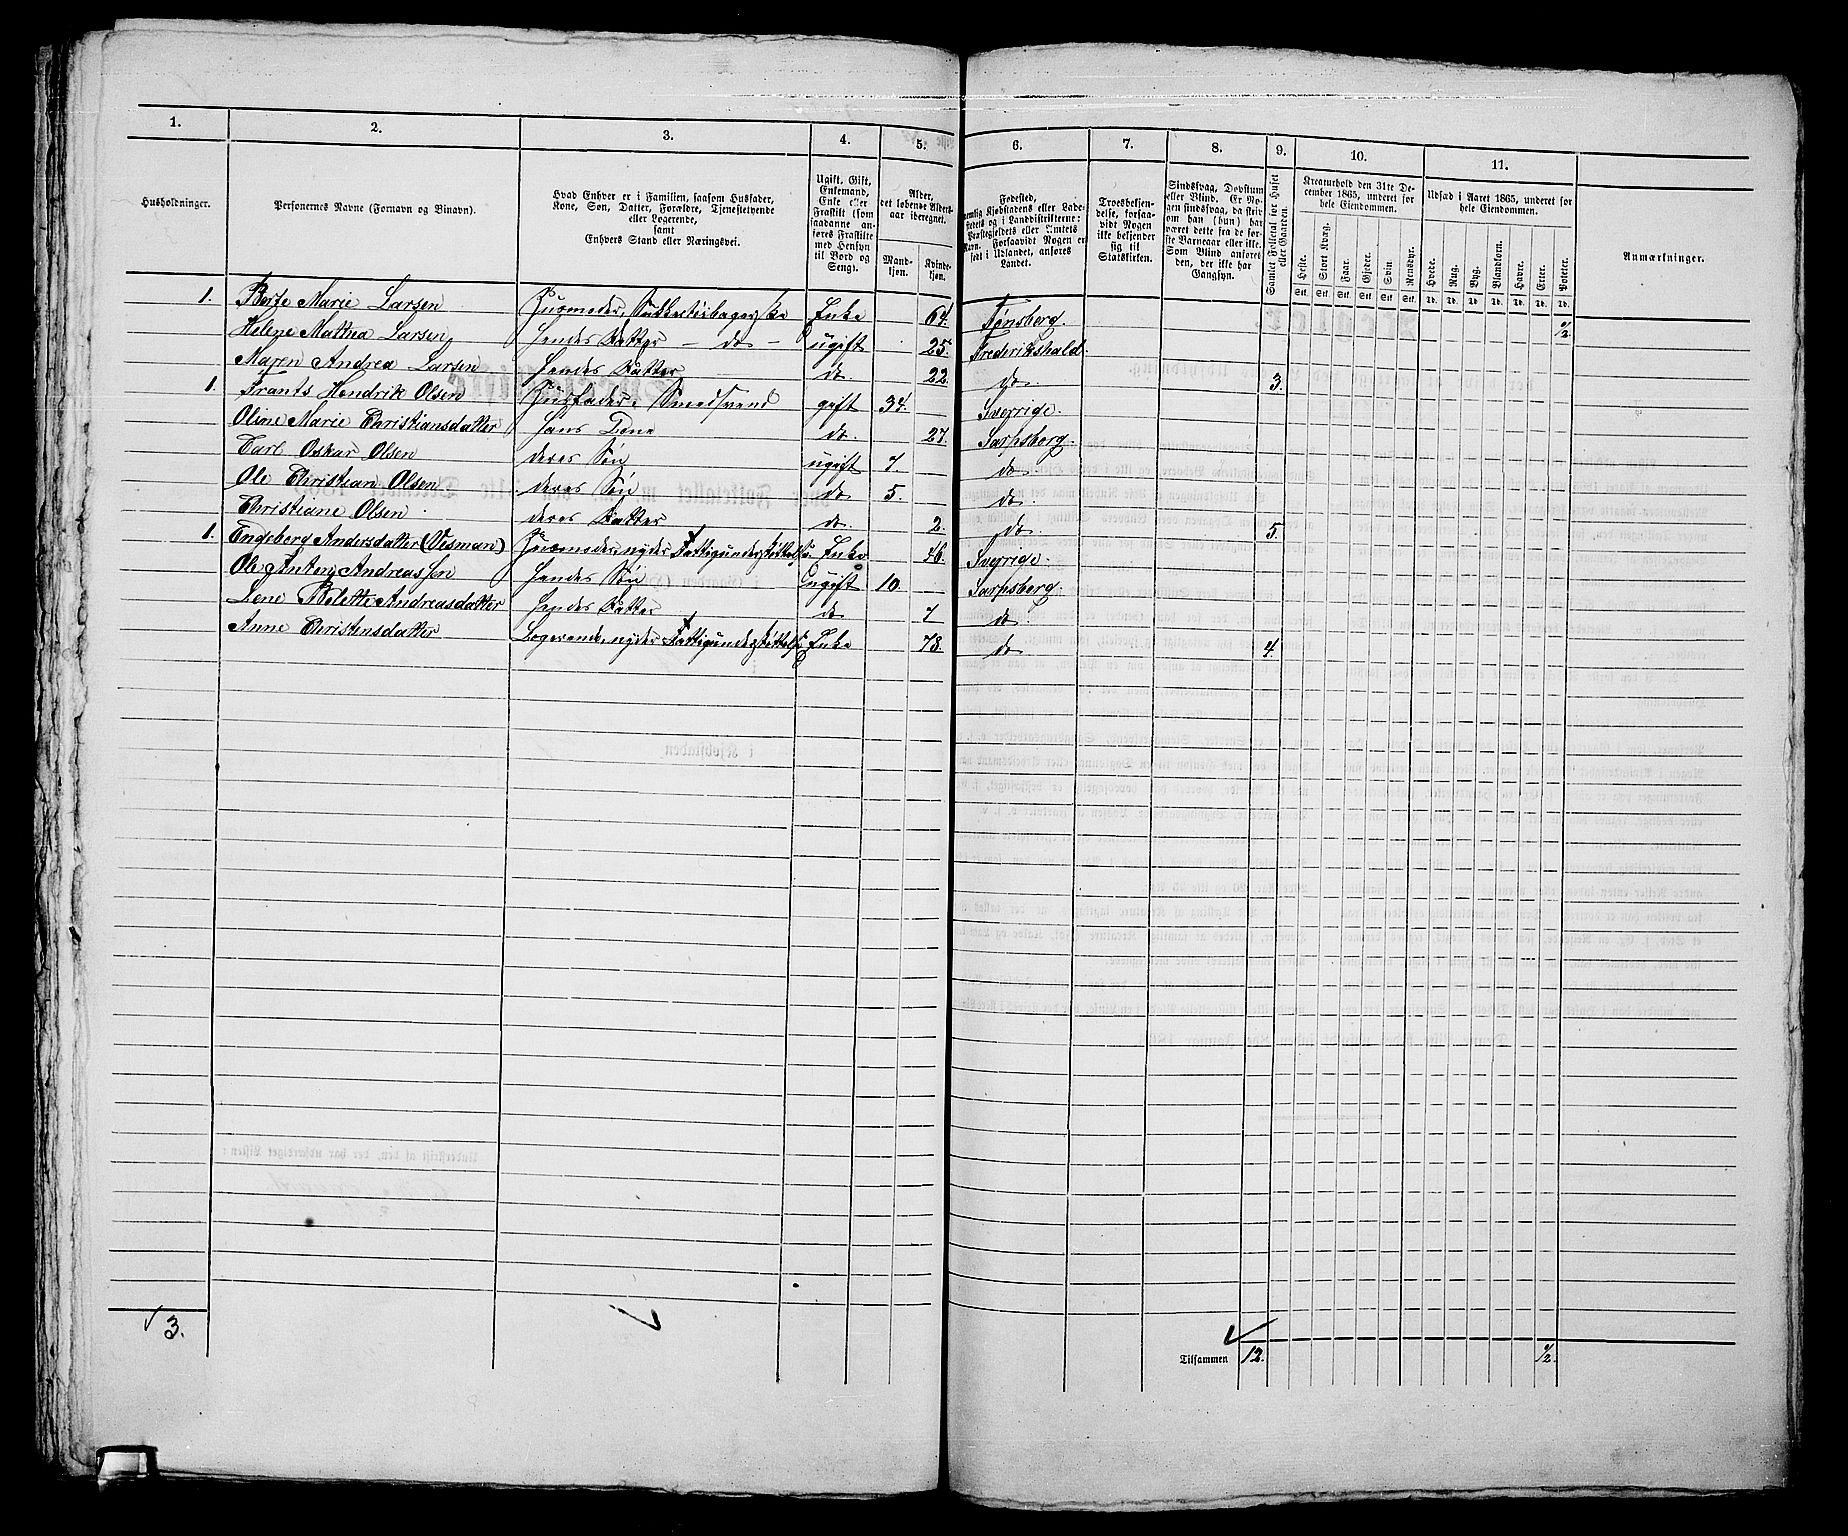 1. 2. 3. 4. 5. 6. 7. 8. 9. 10. 11.
Husholdninger.
Personernes Navne (Fornavn og Binavn).
Hvad Enhver er i Familien, saasom Husfader,
Kone, Søn, Datter, Forældre, Tjenestetyende
eller Logerende,
samt
Enhvers Stand eller Næringsvei.
Ugift, Gift,
Enkemand,
Enke eller
Fraskilt (som
saadanne an-
føres Fraskilte
med Hensyn
til Bord og
Seng).
Alder,
det løbende Alders-
aar iberegnet.
Mand-
kjøn.
Kvinde-
kjøn.
Fødested,
nemlig Kjøbstadens eller Lade-
stedets og i Landdistrikterne:
Præstegjeldets eller Amtets
Navn. Forsaavidt Nogen er
født i Udlandet, anføres
Landet.
Troesbekjen-
delse, forsaa-
vidt Nogen
ikke bekjender
sig til
Statskirken.
Sindssvag, Døvstum
eller Blind. Er No-
gen sindssvag, da skriv
om han (hun) har
været dette fra de før-
ste Barneaar eller ikke.
Som Blind anføres
den, der ikke har
Gangsyn.
Samlet Folketal for Huset
eller Gaarden.
Kreaturhold den 31te De-
cember 1865, underet for
hele Eiendommen.
Heste. Stort Kvæg. Faar. Gjeder. Svin. Rensdyr.
Stk. Stk. Stk. Stk. Stk. Stk.
Udsæd i Aaret 1865, underet for
hele Eiendommen.
Hvede. Rug. Byg. Blandkorn. Havre. Erter. Poteter.
Td. Td. Td. Td. Td. Td. Td.
Anmærkninger.
1. Berte Marie Larsen Husmoder, Enke 64. Tønsberg. ½
Helene Mathea Larsen Hendes Datter – do – ugift 25. Frederikshald.
Maren Andrea Larsen Hendes Datter do. 22. do. 3.
1. Frants Hendrik Olsen Husfader, Smedsvend gift 34. Sverrige.
Oline Marie Christiansdatter Hans Kone do. 27. Sarpsborg.
Carl Oskar Olsen deres Søn ugift 7. do.
Ole Christian Olsen deres Søn do 5. do.
Christiane Olsen deres Datter do. 2. do. 5.
1. Engeborg Andersdatter (Nisman) Husmoder, nyder Fattigunderstøttelse Enke 46. Sverrige.
Ole Anton Andreassen Hendes Søn ugift 10. Sarpsborg.
Lene Belette Andreasdatter Hendes Datter do 7 do
Anne Christensdatter Logerende, nyder Fattigunderstøttelse Enke 78. do 4.
3.
Tilsammen 12. ½